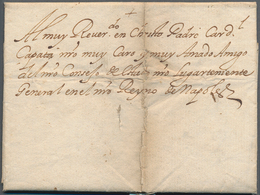 Al muy Rever.do en Cristo Padre Card.l
Capata nro muy Caro y muy Amado Amigo
del nro Consejo de nro Lugarteniente
General en el nro Reyno de Napoles